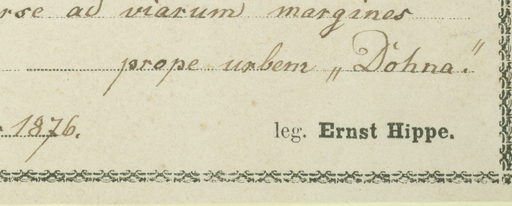 rse ad viarum margines
prope urbem „Dohna."
1876. leg. Ernst Hippe.